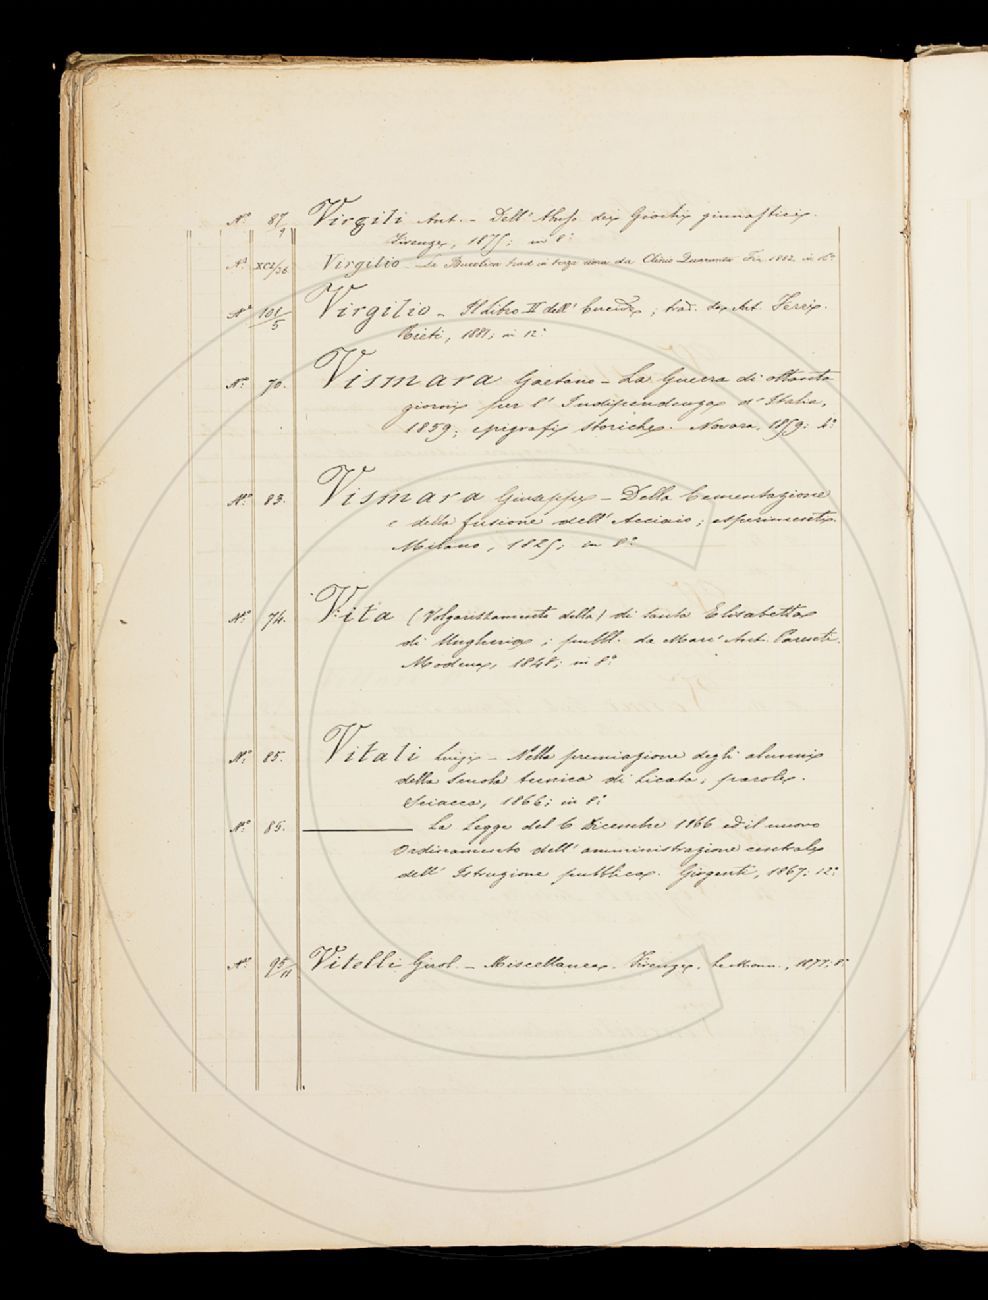 N.º 87/9 Virgili Ant. – Dell' Abuso dei Giochi ginnastici.
Firenze, 1875; in 8.º
N.º XCI/36 Virgilio – La Bucolica trad. in terza rima da Clinio Quaranta Fir. 1882. in 16.º
N.º 101/5 Virgilio – Il libro IV dell' Eneide; trad. Ant.
Rieti, 1881; in 12.º
N.º 70. Vismara Gaetano – La Guerra di ottanta
giorni per l' Indipendenza d' Italia,
1859; epigrafi storiche. Novara, 1859; 4.º
N.º 83. Vismara Giuseppe – Della Cementazione
e della fusione dell' Acciaio; esperimenti.
Milano, 1825; in 8.º
N.º 74. Vita (Volgarizzamento della) di Santa Elisabetta
di Ungheria; pubbl. da Marc' Ant. Parenti.
Modena, 1848; in 8.º
N.º 85. Vitali Luigi – Nella premiazione degli alunni
della Scuola tecnica di Licata; parole.
Sciacca, 1866; in 8.º
N.º 85. ——— La Legge del 6 Dicembre 1866 ed il nuovo
Ordinamento dell' amministrazione centrale
dell' Istruzione pubblica. Girgenti, 1867; 12.º
N.º 95/11 Vitelli Girol. – Miscellanea. Firenze, Le Monn., 1877; 8.º